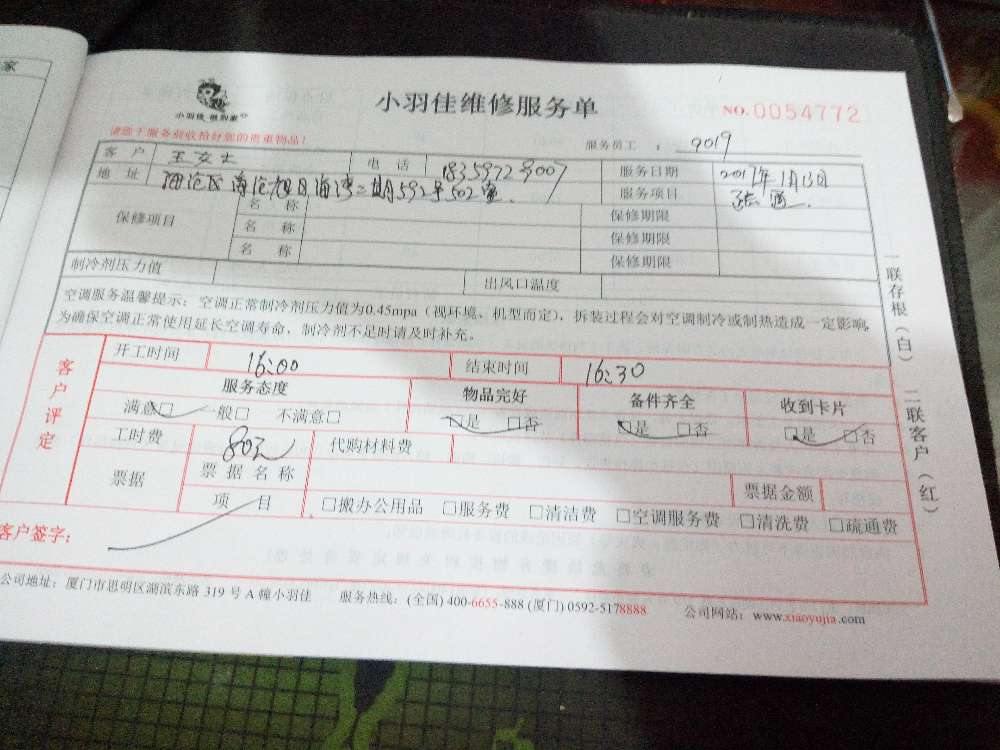 家
小羽佳 做到家
小羽佳维修服务单
NO.0054772
请您于服务前收拾好您的贵重物品！
服务员工 ： 9019
客户 王女士 电话 服务日期 2017年1月13日
地址 海沧区南沧旭日海湾二期592号502室 服务项目 疏通
保修项目 名称 保修期限
名称 保修期限
名称 保修期限
制冷剂压力值 出风口温度
空调服务温馨提示：空调正常制冷剂压力值为0.45mpa（视环境、机型而定），拆装过程会对空调制冷或制热造成一定影响，
为确保空调正常使用延长空调寿命，制冷剂不足时请及时补充。
客户评定
开工时间 16:00 结束时间 16:30
服务态度 物品完好 备件齐全 收到卡片
满意□ 一般□ 不满意□ □是 □否 □是 □否 □是 □否
工时费 80元 代购材料费
票据 票据名称 票据金额
项目 □搬办公用品 □服务费 □清洁费 □空调服务费 □清洗费 □疏通费
客户签字：
公司地址：厦门市思明区湖滨东路 319 号 A 幢小羽佳 服务热线：(全国) 400-6655-888 (厦门) 0592-5178888 公司网站：www.xiaoyujia.com
一联存根（白） 二联客户（红）